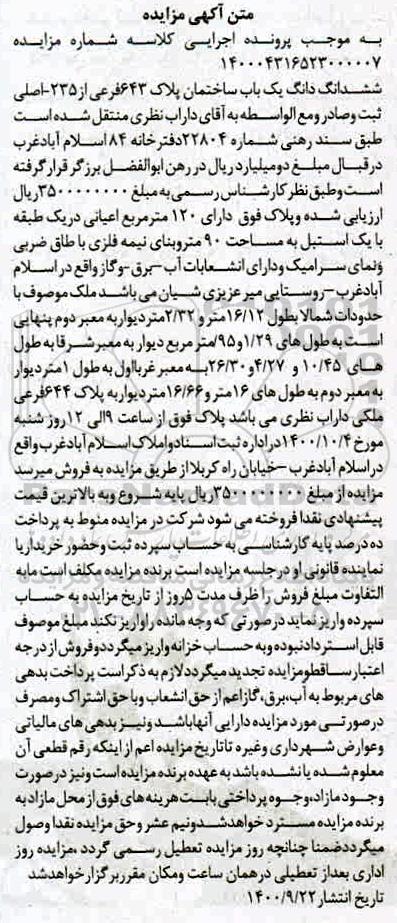 متن آگهی مزایده
به موجب پرونده اجرایی کلاسه شماره مزایده
۱۴۰۰۰۴۳۱۶۵۲۳۰۰۰۰۰۷
ششدانگ دانگ یک باب ساختمان پلاک ۶۴۳فرعی از۲۳۵-اصلی
ثبت وصادر ومع الواسطه به آقای داراب نظری منتقل شده است
طبق سند رهنی شماره ۲۲۸۰۴دفترخانه ۸۴ اسلام آبادغرب
درقبال مبلغ دومیلیارد ریال در رهن ابوالفضل برزگر قرار گرفته
است وطبق نظر کارشناس رسمی به مبلغ ۳۵۰۰۰۰۰۰۰۰ریال
ارزیابی شده وپلاک فوق دارای ۱۲۰ مترمربع اعیانی دریک طبقه
با یک استبل به مساحت ۹۰ متروبنای نیمه فلزی با طاق ضربی
ونمای سرامیک ودارای انشعابات آب -برق -وگاز واقع در اسلام
آبادغرب -روستایی میر عزیزی شیان می باشد ملک موصوف با
حدودات شمالا بطول ۱۶/۱۲متر و ۲/۳۲متر دیوار به معبر دوم پنهایی
است به طول های ۱/۲۹و۹۵متر مربع دیوار به معبر شرقا به طول
های ۱۰/۴۵ و ۴/۲۷و ۲۶/۳۰به معبر غربا اول به طول ۱متردیوار
به معبر دوم به طول های ۱۶متر و۱۶/۶۶متر دیوار به پلاک ۶۴۴فرعی
ملکی داراب نظری می باشد پلاک فوق از ساعت ۹الی ۱۲روز شنبه
مورخ ۱۴۰۰/۱۰/۴دراداره ثبت اسنادواملاک اسلام آبادغرب واقع
دراسلام آبادغرب -خیابان راه کربلا از طریق مزایده به فروش میرسد
مزایده از مبلغ ۳۵۰۰۰۰۰۰۰۰ریال پایه شروع وبه بالاترین قیمت
پیشنهادی نقدا فروخته می شود شرکت در مزایده منوط به پرداخت
ده درصد پایه کارشناسی به حساب سپرده ثبت وحضور خریدار یا
نماینده قانونی او در جلسه مزایده است برنده مزایده مکلف است مابه
التفاوت مبلغ فروش را ظرف مدت ۵روز از تاریخ مزایده به حساب
سپرده واریز نماید درصورتی که وجه مانده راواریز نکند مبلغ موصوف
قابل استردادنبوده وبه حساب خزانه واریز میگرددوفروش از درجه
اعتبار ساقطومزایده تجدید میگرددلازم به ذکراست پرداخت بدهی
های مربوط به آب،برق،گازاعم از حق انشعاب ویاحق اشتراک ومصرف
درصورتی مورد مزایده دارایی آنهاباشد ونیز بدهی های مالیاتی
وعوارض شهرداری وغیره تاتاریخ مزایده اعم از اینکه رقم قطعی آن
معلوم شده یا نشده باشد به عهده برنده مزایده است ونیز درصورت
وجود مازاد،وجوه پرداختی بابت هزینه های فوق از محل مازاد به
برنده مزایده مسترد خواهدشدونیم عشر وحق مزایده نقدا وصول
میگرددضمنا چنانچه روز مزایده تعطیل رسمی گردد ،مزایده روز
اداری بعداز تعطیلی درهمان ساعت ومکان مقرربرگزار خواهدشد
تاریخ انتشار ۱۴۰۰/۹/۲۲